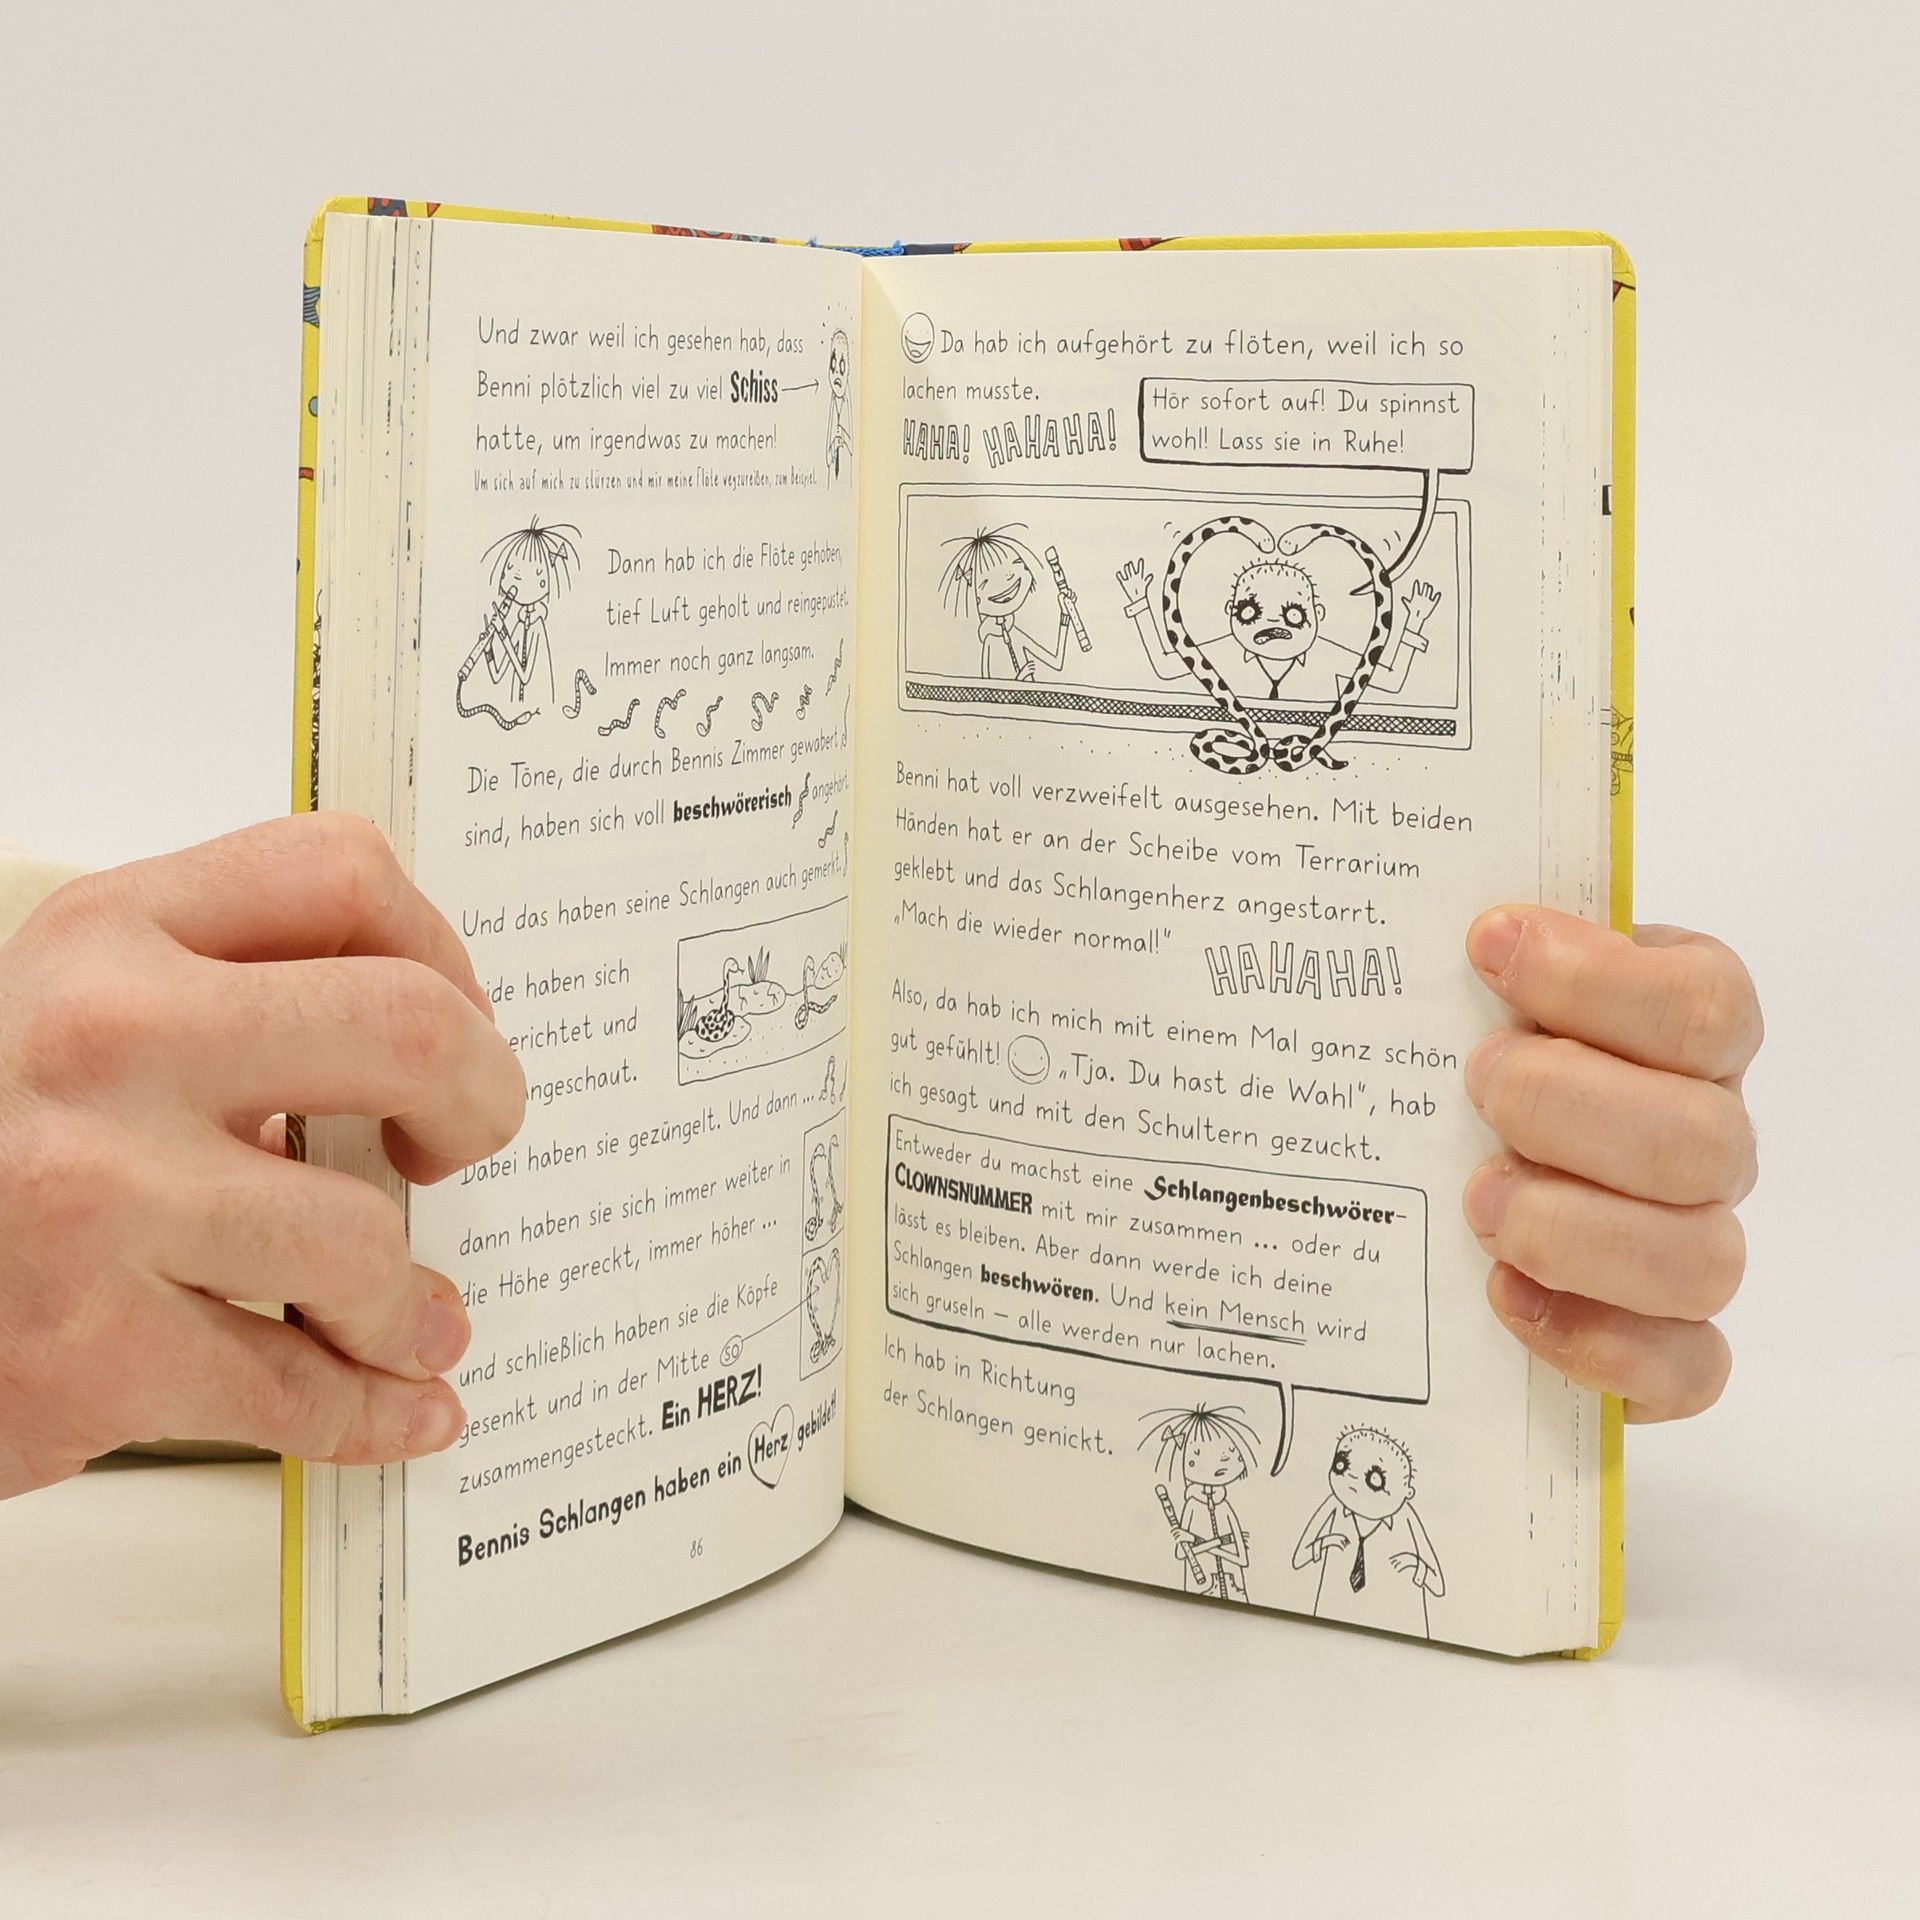 Und zwar weil ich gesehen hab, dass
Benni plötzlich viel zu viel Schiss
hatte, um irgendwas zu machen!
Um sich auf mich zu stürzen und mir meine Flöte wegzureißen, zum Beispiel.
Dann hab ich die Flöte gehoben,
tief Luft geholt und reingepustet.
Immer noch ganz langsam.
Die Töne, die durch Bennis Zimmer gewabert
sind, haben sich voll beschwörerisch angehört.
Und das haben seine Schlangen auch gemerkt.
haben sich
und
Dabei haben sie gezüngelt. Und dann ...
dann haben sie sich immer weiter in
die Höhe gereckt, immer höher ...
und schließlich haben sie die Köpfe
gesenkt und in der Mitte so
zusammengesteckt. Ein HERZ!
Bennis Schlangen haben ein Herz gebildet!
86
Da hab ich aufgehört zu flöten, weil ich so
lachen musste.
HAHA! HAHAHA!
Hör sofort auf! Du spinnst
wohl! Lass sie in Ruhe!
Benni hat voll verzweifelt ausgesehen. Mit beiden
Händen hat er an der Scheibe vom Terrarium
geklebt und das Schlangenherz angestarrt.
„Mach die wieder normal!"
HAHAHA!
Also, da hab ich mich mit einem Mal ganz schön
gut gefühlt! „Tja. Du hast die Wahl", hab
ich gesagt und mit den Schultern gezuckt.
Entweder du machst eine Schlangenbeschwörer-
CLOWNSNUMMER mit mir zusammen ... oder du
lässt es bleiben. Aber dann werde ich deine
Schlangen beschwören. Und kein Mensch wird
sich gruseln – alle werden nur lachen.
Ich hab in Richtung
der Schlangen genickt.